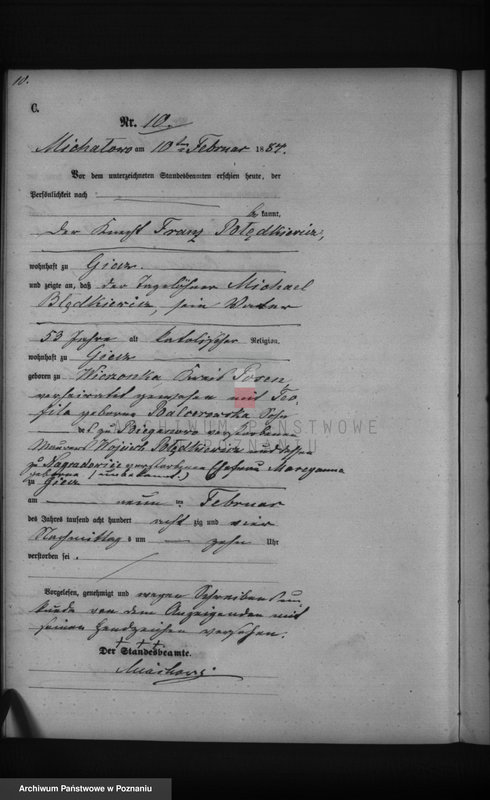 10.
C.
Nr. 10.
Michałowo am 10ten Februar 1884.
Vor dem unterzeichneten Standesbeamten erschien heute, der
Persönlichkeit nach
be kannt,
der Knecht Franz
wohnhaft zu Giecz
und zeigte an, daß der Tagelöhner Michael
sein Vater
53 Jahre alt katolischer Religion,
wohnhaft zu Giecz
geboren zu Wiczonka Kreis Posen,
verheirathet gewesen mit Teo-
fila geborene Sohn
des zu verstorbenen
Maurers Wojciech und dessen
zu verstorbenen Ehefrau Maryanna
geborene (unbekannt.)
zu Giecz
am neun ten Februar
des Jahres tausend acht hundert acht zig und vier
Nachmittag s um zehn Uhr
verstorben sei.
Vorgelesen, genehmigt und wegen Schreibensun-
kunde von dem Anzeigenden mit
seinem Handzeichen versehen.
+ + +
Der Standesbeamte.
ARCHIWUM PAŃSTWOWE
W POZNANIU
Archiwum Państwowe w Poznaniu